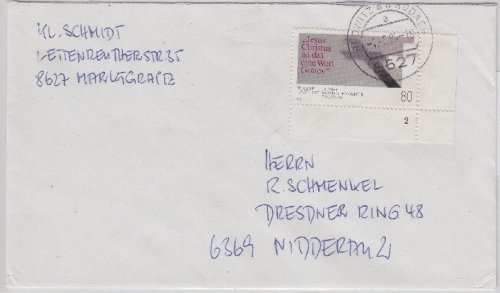 KL. SCHMIDT
LETTENREUTHERSTR. 35
8627 MARKTGRAITZ
"Jesus
Christus
ist das
eine Wort
Gottes"
80
2
8627
HERRN
R. SCHMENKEL
DRESDNER RING 48
6369 NIDDERAU 21